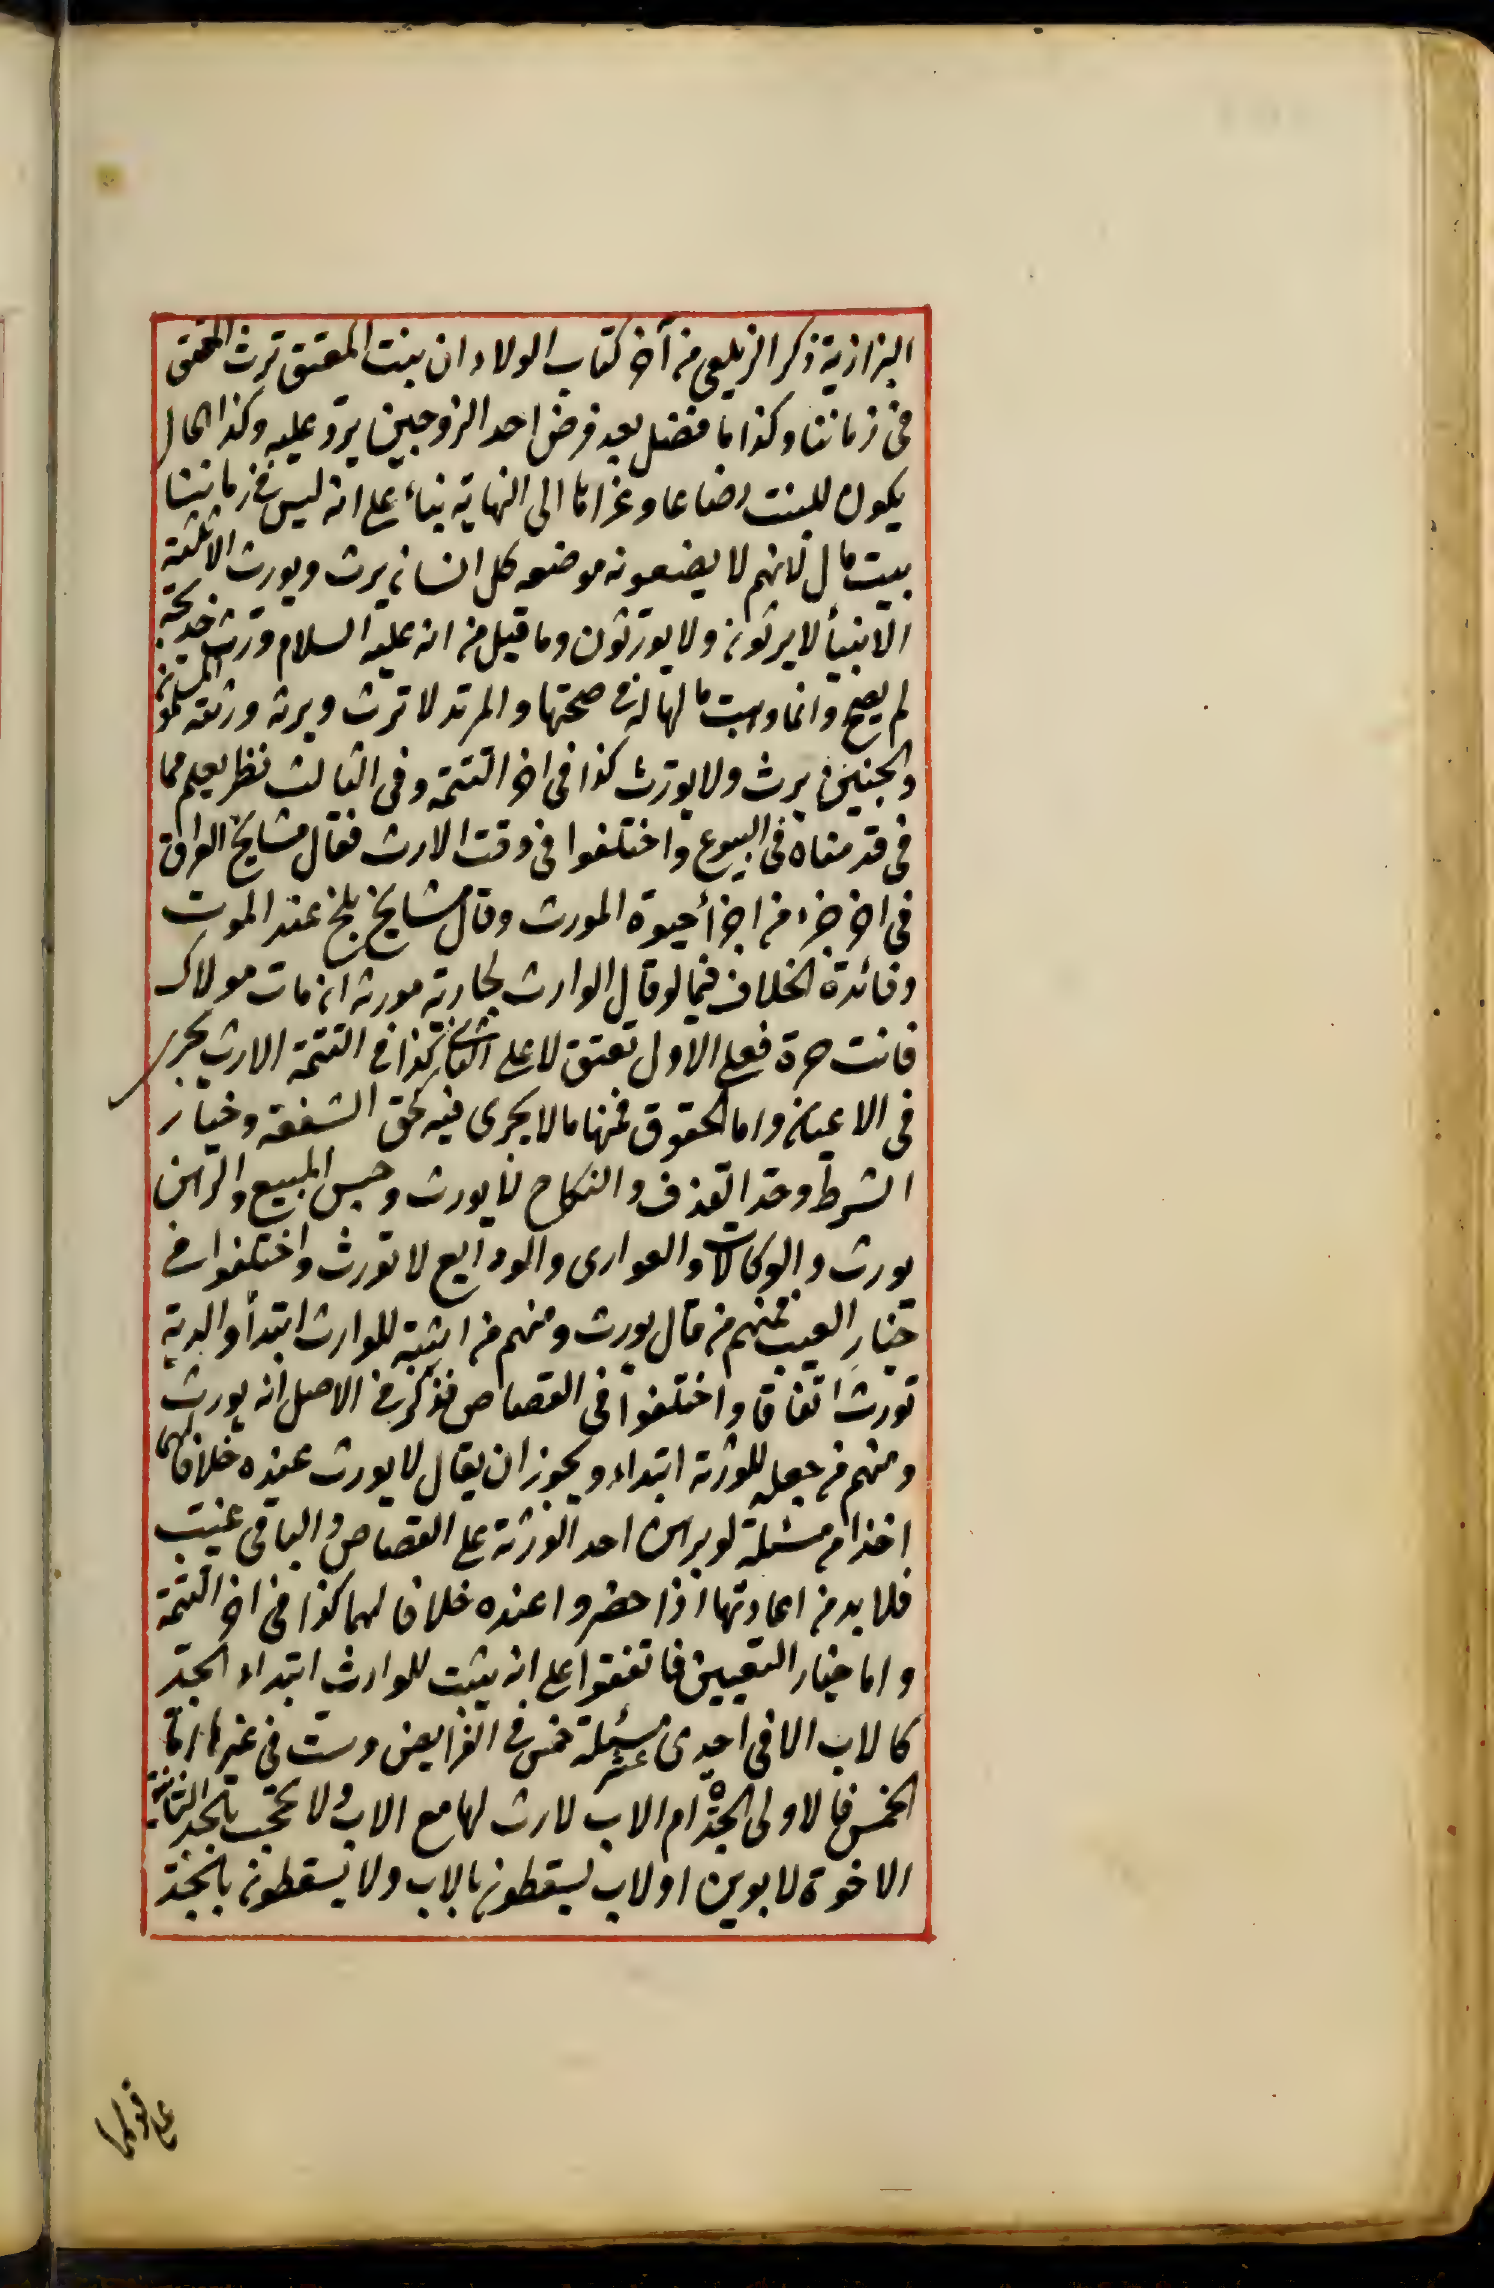 البزازية ذكر الزيلعي من آخر كتاب الولاء ان بنت المعتق ترث المعتق
في زماننا وكذا ما فضل بعد فرض احد الزوجين يرد عليه وكذا المال
يكون للبنت رضاعا وعزاها الى النهاية بناء على انه ليس في زماننا
بيت مال لانهم لا يضعونه موضعه كل انسان يرث ويورث الا ثلثة
الانبيأ لا يرثون ولا يورثون وما قيل من انه عليه السلام ورث خديجة
لم يصح وانما وهبت مالها له في صحتها والمرتد لا ترث ويرثه ورثته المسلمون
والجنين يرث ولا يورث كذا في اخر التتمة وفى الثالث نظر يعلم مما
في قدمناه في البيوع واختلفوا في وقت الارث فقال مشايخ العراق
في اخر جزء من اجزأ حيوة المورث وقال مشايخ بلخ عند الموت
وفائدة الخلاف فيما لو قال الوارث لجارية مورثه ان مات مولاك
فانت حرة فعلى الاول تعتق لا على الثاني كذا في التتمة الارث يجرى
في الاعيان واما الحقوق فمنها مالا يجرى فيه كحق الشفعة وخيار
الشرط وحد القذف والنكاح لا يورث وحبس المبيع والرهن
يورث والوكالات والعوارى والودايع لا تورث واختلفوا في
خيار العيب فمنهم من قال يورث ومنهم من اثبته للوارث ابتدأ والدية
تورث اتفاقا واختلفوا في القصاص فذكر في الاصل انه يورث
ومنهم من جعله للورثة ابتداء ويجوز ان يقال لا يورث عنده خلافا لهما
اخذا من مسئلة لو برهن احد الورثة على القصاص والباقى غيب
فلابد من اعادتها اذا حضروا عنده خلافا لهما كذا في اخر التتمة
واما خيار التعيين فاتفقوا على انه يثبت للوارث ابتداء الجد
كالاب الا في احدى عشر مسئلة خمس في الفرايض وست في غيرها اما
الخمس فالاولى الجدة ام الاب لا ارث لها مع الاب ولا تحجب بالجد الثانية
الاخوة لابوين او لاب يسقطون بالاب ولا يسقطون بالجد
على قولهما